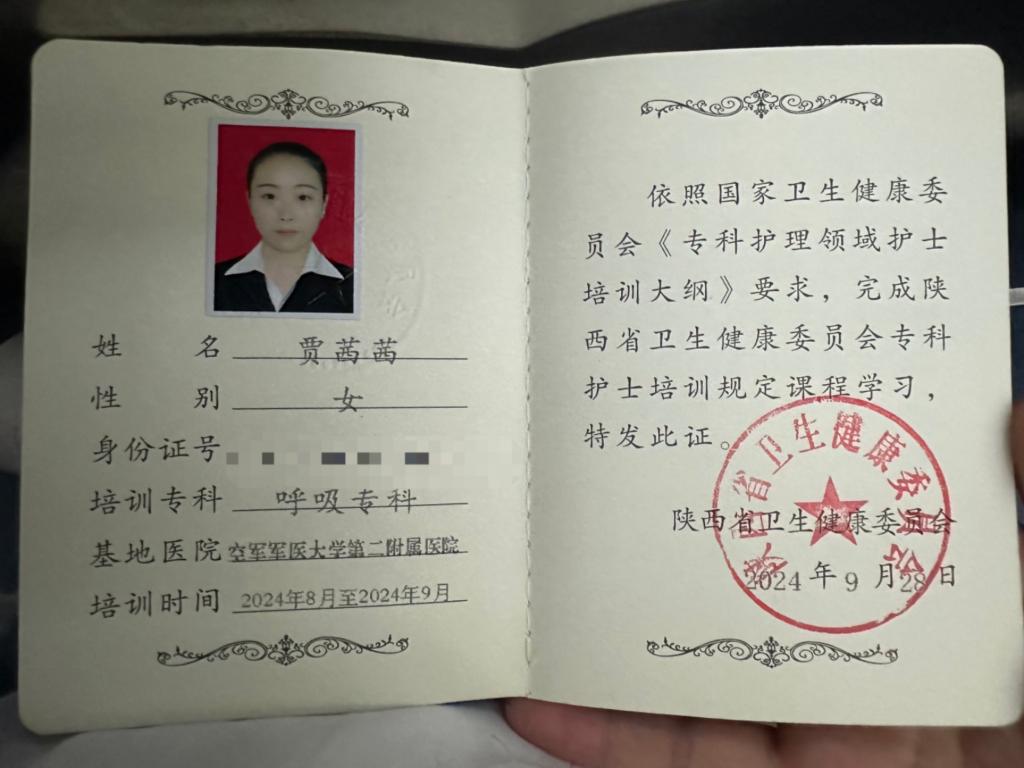 姓名 贾茜茜
性别 女
身份证号
培训专科 呼吸专科
基地医院 空军军医大学第二附属医院
培训时间 2024年8月至2024年9月
依照国家卫生健康委
员会《专科护理领域护士
培训大纲》要求，完成陕
西省卫生健康委员会专科
护士培训规定课程学习，
特发此证。
陕西省卫生健康委员会
2024年9月28日
陕西省卫生健康委员会